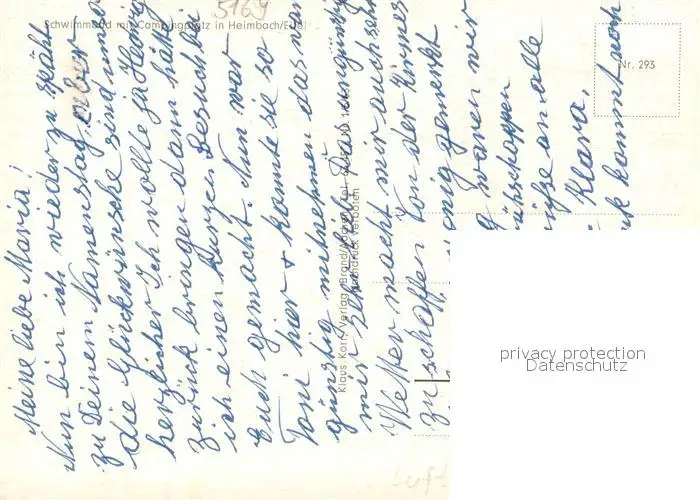 Schwimmbad mit Campingplatz in Heimbach/Eifel
5169
Nr. 293
Meine liebe Maria!
Nun bin ich wieder zu spät
zu Deinem Namenstag, aber
die Glückwünsche sind um so
herzlicher. Ich wollte ja Heinrich
zurück bringen dann hätte
ich einen kurzen Besuch bei
Euch gemacht. Nun war
Toni hier + konnte sie so
günstig mitnehmen das war
mir sehr lieb. Das ungünstige
Wetter macht mir auch sehr
zu schaffen. Von der Kirmes
wenig gemerkt
waren wir
Frühschoppen
Grüße an alle
Klara,
kommt noch
Klaus Korn, Verlag, Brand/Aachen, Tel.
Nachdruck verboten
privacy protection
Datenschutz